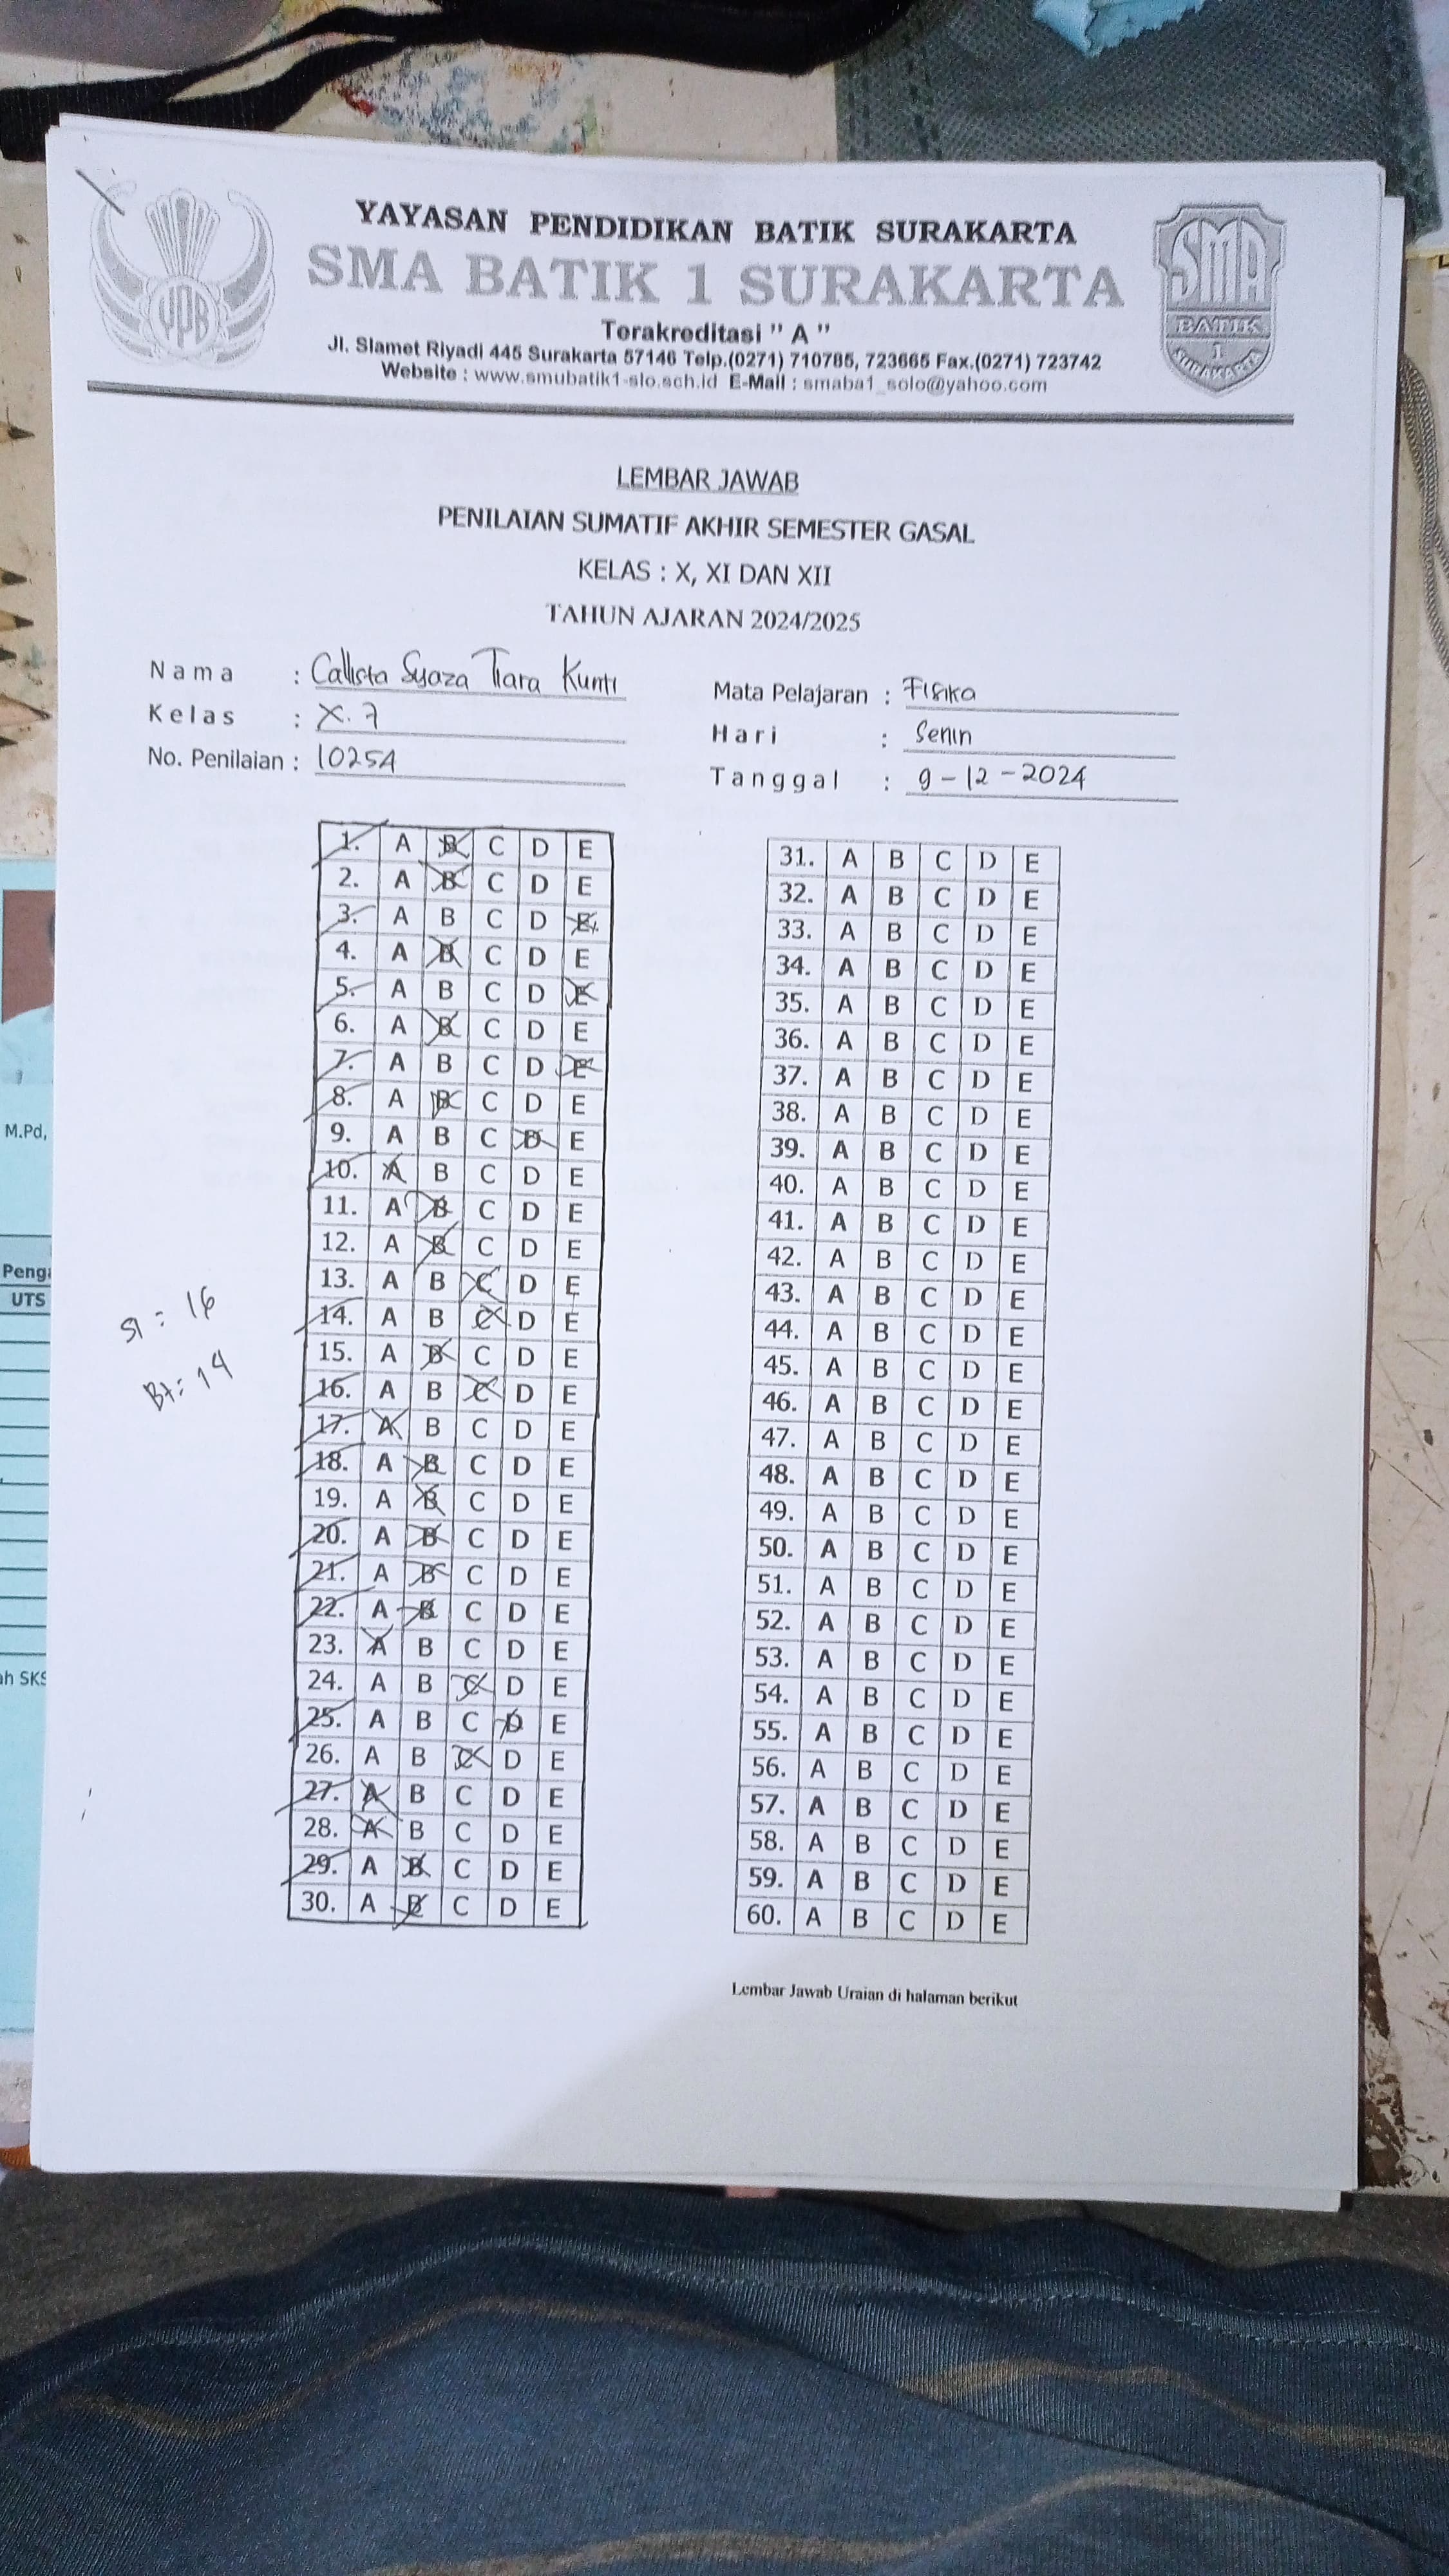 YAYASAN PENDIDIKAN BATIK SURAKARTA
SMA BATIK 1 SURAKARTA
Terakreditasi " A "
Jl. Slamet Riyadi 445 Surakarta 57146 Telp.(0271) 710785, 723665 Fax.(0271) 723742
Website : www.smubatik1-slo.sch.id E-Mail : smaba1_solo@yahoo.com
YPB
SMA
BATIK
1
SURAKARTA
LEMBAR JAWAB
PENILAIAN SUMATIF AKHIR SEMESTER GASAL
KELAS : X, XI DAN XII
TAHUN AJARAN 2024/2025
Nama : Callista Syaza Tiara Kunti
Kelas : X.7
No. Penilaian : 10254
Mata Pelajaran : Fisika
Hari : Senin
Tanggal : 9-12-2024
1. A B C D E
2. A B C D E
3. A B C D E
4. A B C D E
5. A B C D E
6. A B C D E
7. A B C D E
8. A B C D E
9. A B C D E
10. A B C D E
11. A B C D E
12. A B C D E
13. A B C D E
14. A B C D E
15. A B C D E
16. A B C D E
17. A B C D E
18. A B C D E
19. A B C D E
20. A B C D E
21. A B C D E
22. A B C D E
23. A B C D E
24. A B C D E
25. A B C D E
26. A B C D E
27. A B C D E
28. A B C D E
29. A B C D E
30. A B C D E
31. A B C D E
32. A B C D E
33. A B C D E
34. A B C D E
35. A B C D E
36. A B C D E
37. A B C D E
38. A B C D E
39. A B C D E
40. A B C D E
41. A B C D E
42. A B C D E
43. A B C D E
44. A B C D E
45. A B C D E
46. A B C D E
47. A B C D E
48. A B C D E
49. A B C D E
50. A B C D E
51. A B C D E
52. A B C D E
53. A B C D E
54. A B C D E
55. A B C D E
56. A B C D E
57. A B C D E
58. A B C D E
59. A B C D E
60. A B C D E
Sl = 16
Bt = 14
Lembar Jawab Uraian di halaman berikut
M.Pd,
UTS
SKS